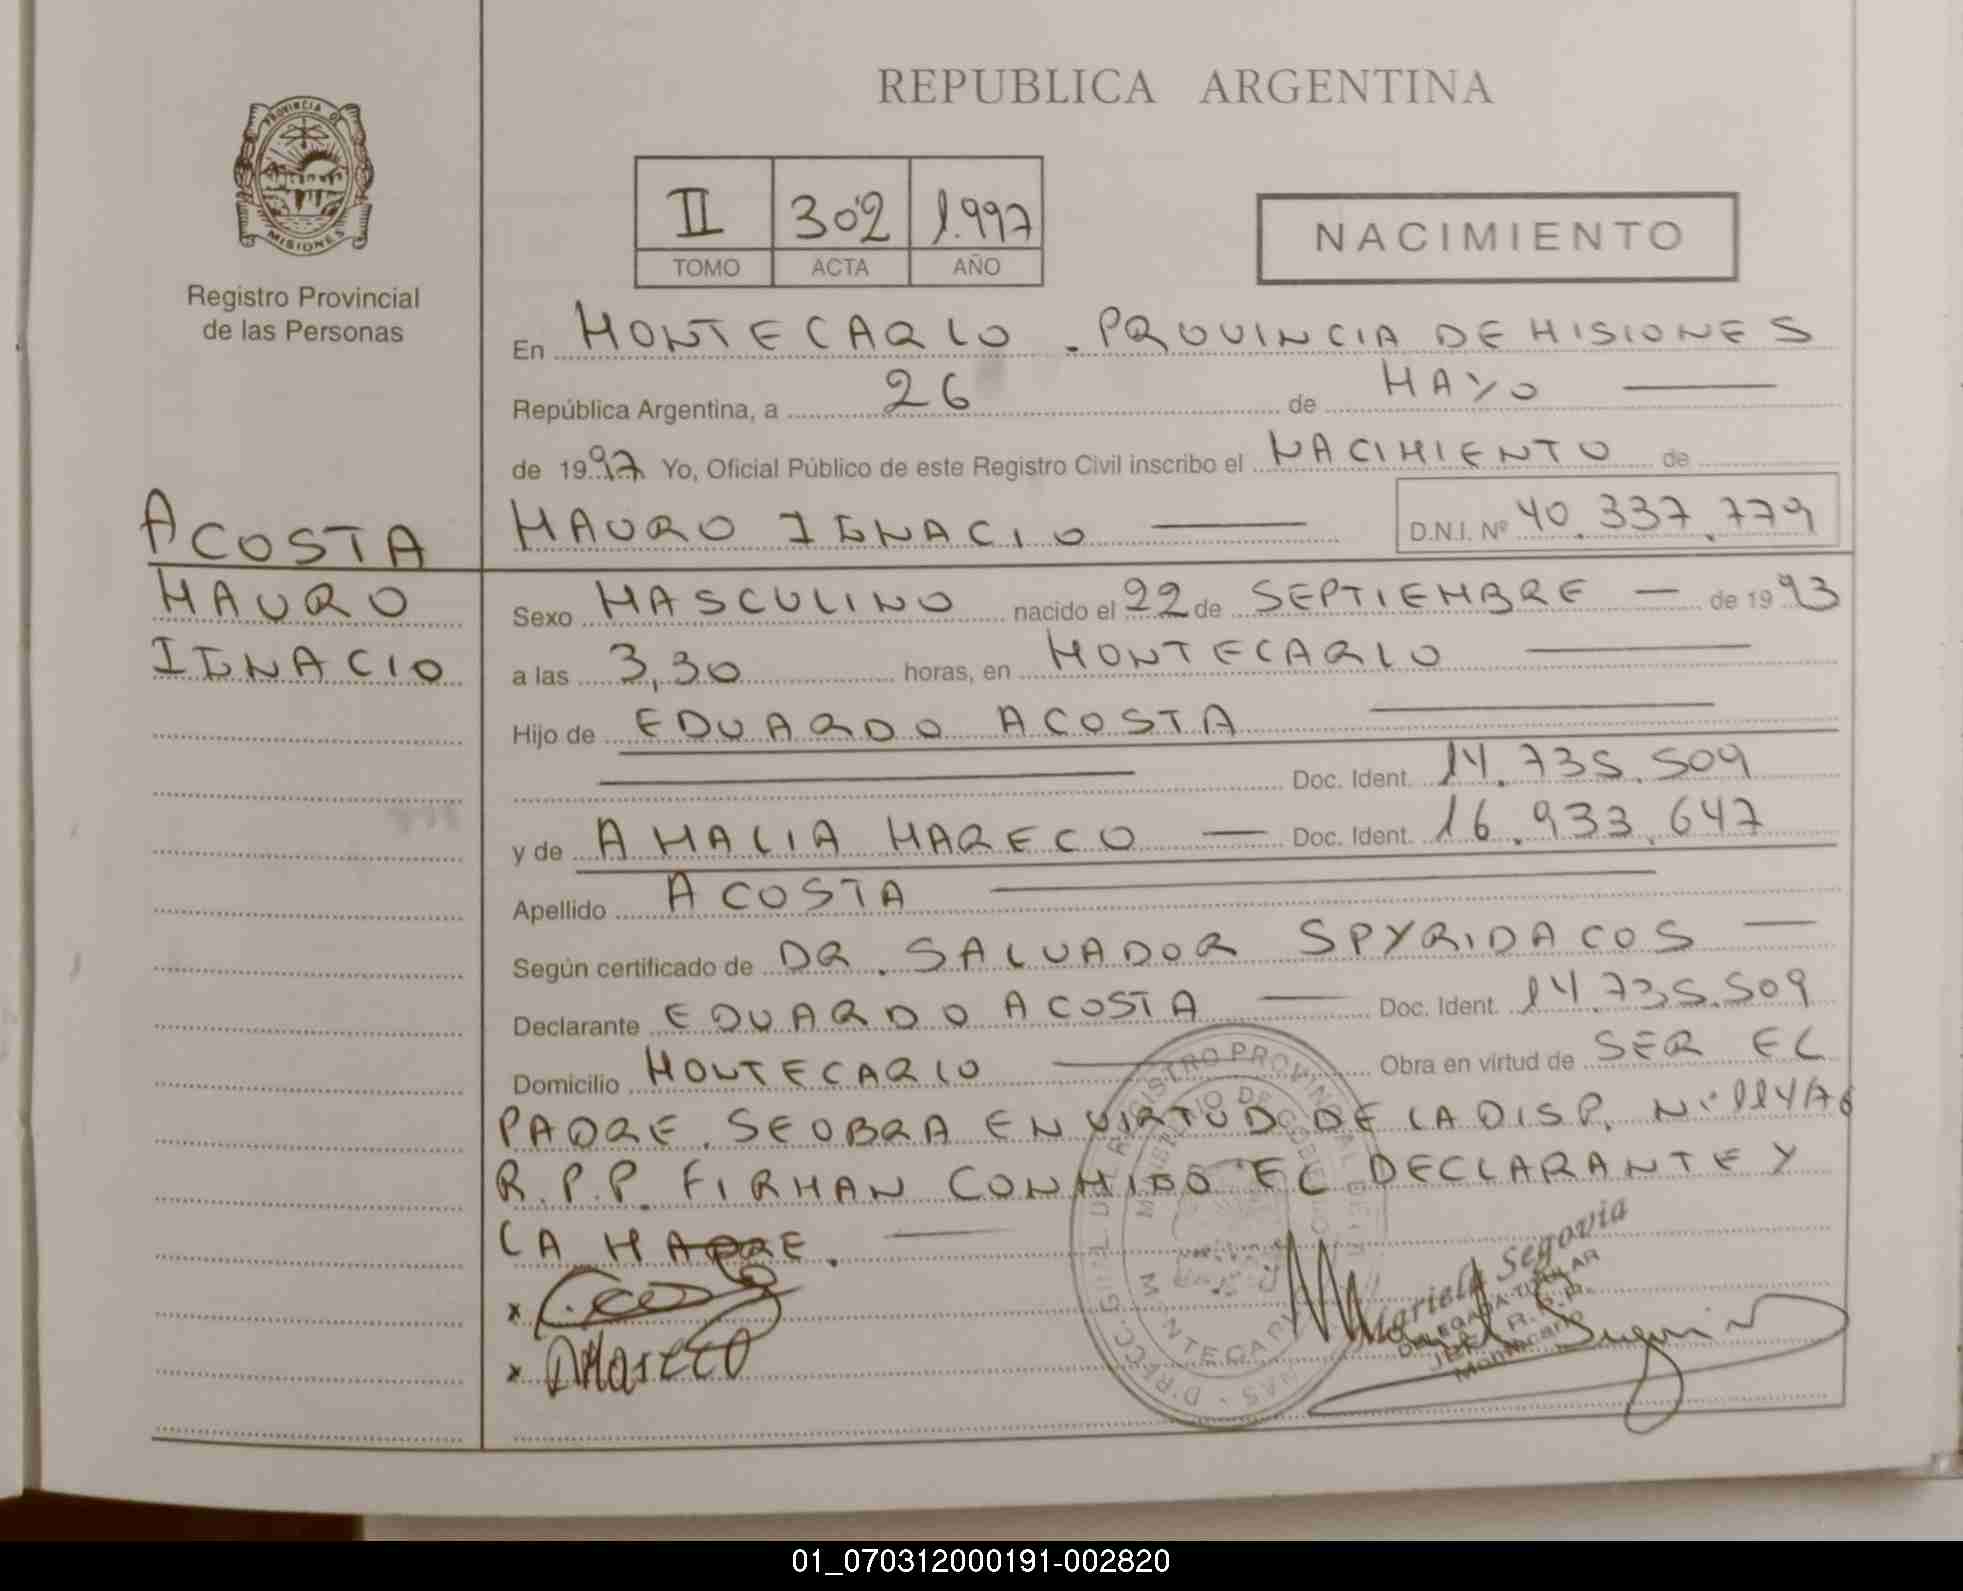 REPUBLICA ARGENTINA
PROVINCIA DE
MISIONES
Registro Provincial
de las Personas
II 302 1.997
TOMO ACTA AÑO
NACIMIENTO
En MONTECARLO . PROVINCIA DE MISIONES
República Argentina, a 26 de MAYO
de 1997 Yo, Oficial Público de este Registro Civil inscribo el NACIMIENTO de
MAURO IGNACIO D.N.I. Nº 40.337.779
ACOSTA
MAURO
IGNACIO
Sexo MASCULINO nacido el 22 de SEPTIEMBRE de 1993
a las 3,30 horas, en MONTECARLO
Hijo de EDUARDO ACOSTA
Doc. Ident. 14.735.509
y de AMALIA MARECO Doc. Ident. 16.933.647
Apellido ACOSTA
Según certificado de DR. SALVADOR SPYRIDACOS
Declarante EDUARDO ACOSTA Doc. Ident. 14.735.509
Domicilio MONTECARLO Obra en virtud de SER EL
PADRE. SE OBRA EN VIRTUD DE LA DISP. Nº 114/96
R.P.P. FIRMAN CONMIGO EL DECLARANTE Y
LA MADRE.
x
x AMareco
Mariela Segovia
DELEGADA TITULAR
Montecarlo
01_070312000191-002820